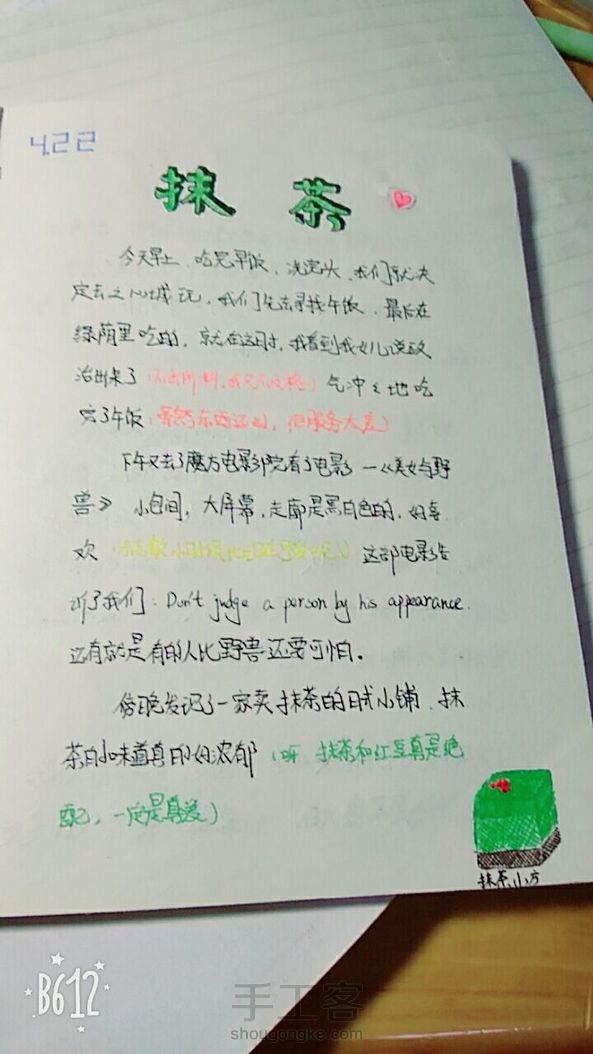 4.22
抹茶
今天早上,吃完早饭,洗完头,我们就决
定去之心城玩,我们先去寻找午饭,最后在
绿荫里吃的,就在这时,我看到我女儿说
治出来了 气冲冲地吃
完了午饭(虽然东西还可以,但服务太差)
下午又去了魔方电影院看了电影 —《美女与野
兽》 小包间,大屏幕,走廊是黑白色的,好喜
欢 这部电影告
诉了我们:Don't judge a person by his appearance.
还有就是有的人比野兽还要可怕。
傍晚发现了一家卖抹茶的日式小铺,抹
茶的味道真的好浓郁(呀 抹茶和红豆真是绝
配,一定是真爱)
抹茶小方
B612
手工客
shougongke.com